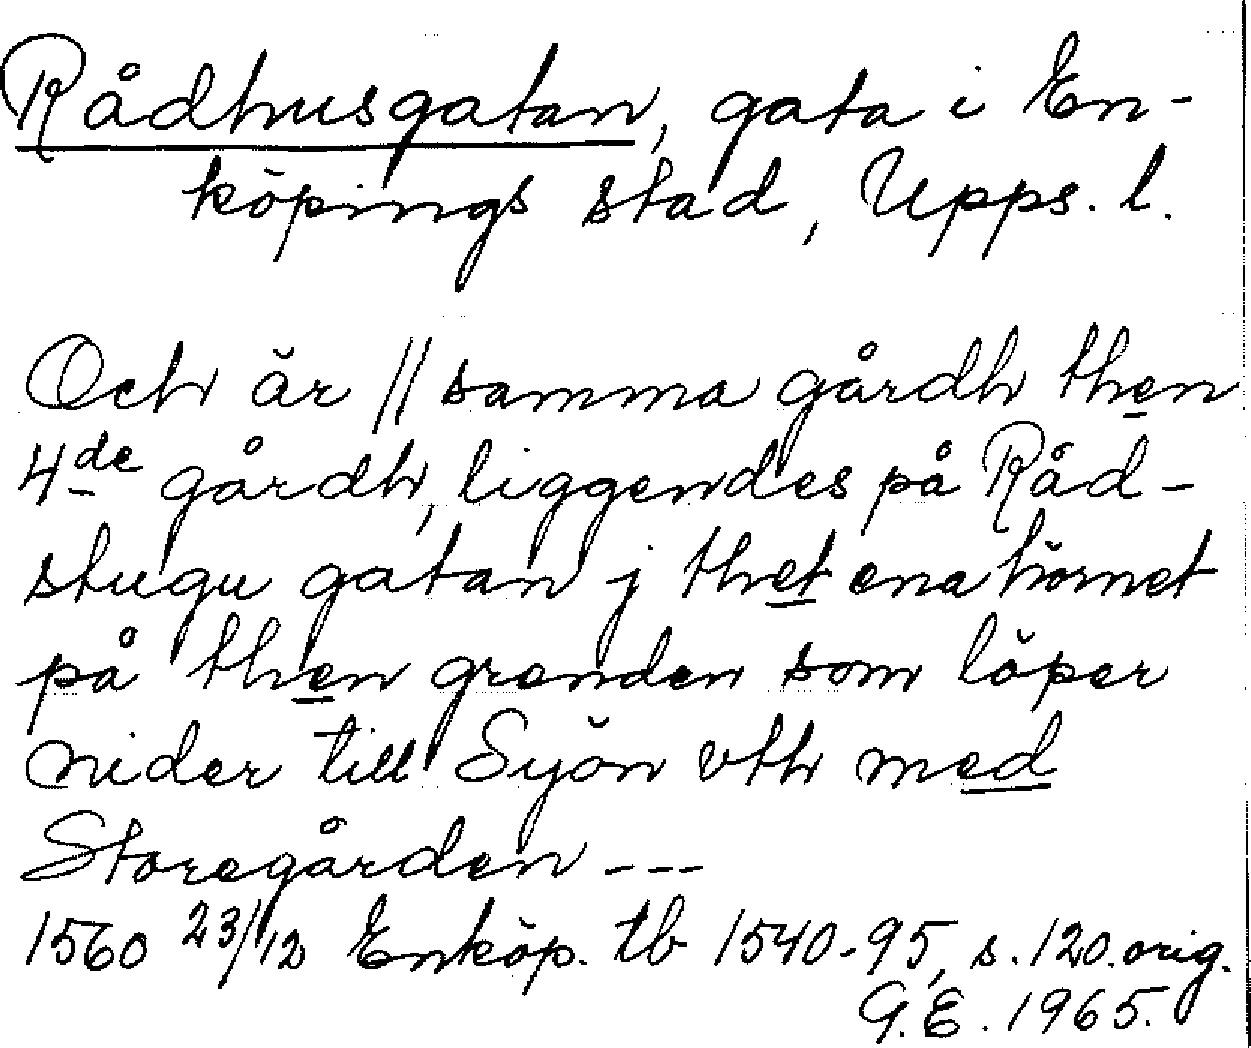 Rådhusgatan, gata i En-
köpings stad, Upps. l.
Och är // samma gårdh then
4de gårdh, liggendes på Råd-
stugu gatan j thet ena hörnet
på then grenden som löper
nider till Syön vth med
Storegården ---
1560 23/12 Enköp. tb 1540-95, s. 120. orig.
G.E. 1965.